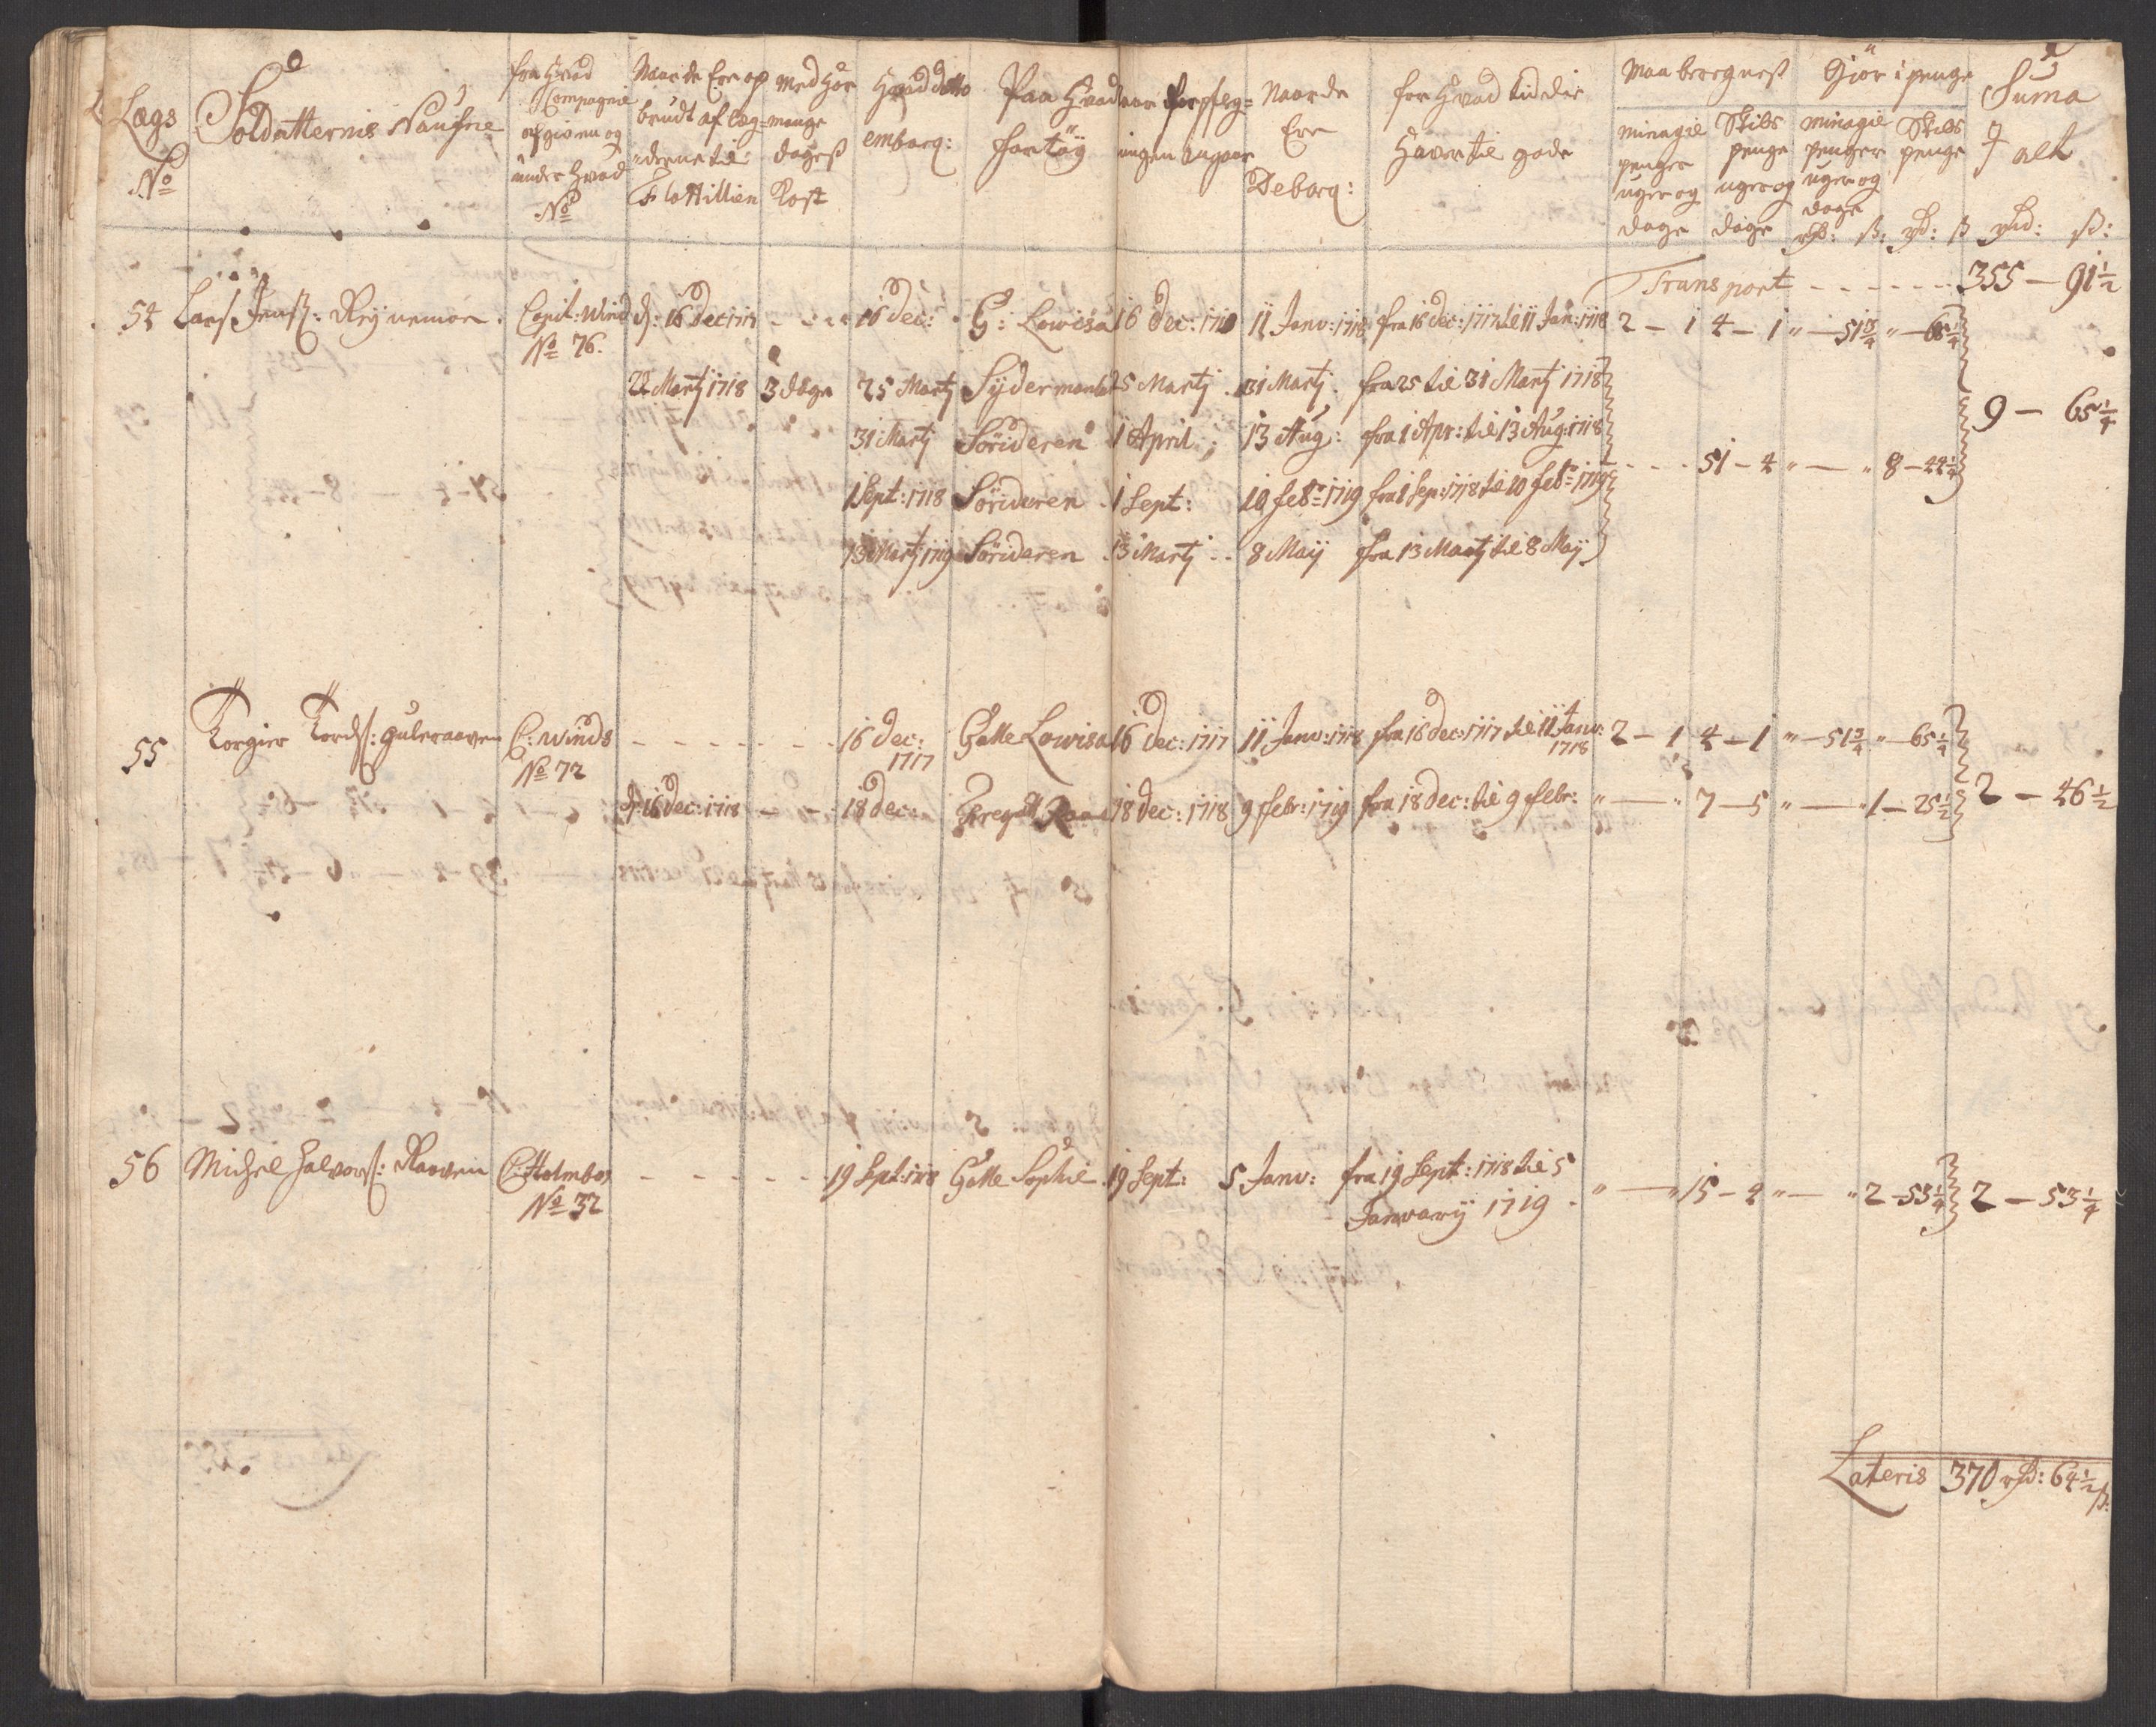 Lægs No
Soldatternis Naufne
fra Hvad Compagnie afgiven og under Hvad No
Naar de Ere op brudt af læg= derne til Flottillien
Med Hor mange dages Kost
Hvad datto embarq:
Paa Hvad fartöy
Naar forpfleg= ningen angaar
Naar de Ere Debarq:
for Hvad tid die Haver til gode
Maa beregnes
minagie penger uger og dage
Skibs penge uger og dage
Giör i penge
minagie penger uger og dage rd: ß:
Skibs penge rd: ß
Suma alt rd: ß:
Transport - - - - - - 355 — 91½
54 Lars Jens: Reynemoen. Capit: Wind d: 16 dec 1717 - - - 16 dec: G: Lowisa 16 dec: 1717 11 Janv: 1718 fra 16 dec: 1717 til 11 Jan: 1718 2 - 1 4 - 1 " — 51¾ " — 65¼
No 76.
22 Martj 1718 3 dage 25 Martj Sydermanland 25 Martj. 31 Martj. fra 25 til 31 Martj 1718
9 — 65¼
31 Martj Sörideren 1 April; 13 Aug: fra 1 Apr: til 13 Aug: 1718
- - - 51 - 4 " — " 8 - 44½
1 Sept: 1718 Sörideren 1 Sept: 10 febr 1719 fra 1 Sep: 1718 til 10 febr 1719
13 Martj 1719 Sörideren 13 Martj. 8 Maij fra 13 Martj til 8 Maij
55 Torgier Tords: Guleraaven C: Winds - - - - - - 16 dec: 1717 Galle Lowisa 16 dec: 1717 11 Janv: 1718 fra 16 dec: 1717 til 11 Janv: 1718 2 - 1 4 - 1 " — 51¾ " — 65¼
No 72
d: 16 dec: 1718 - - - 18 dec: Fregatt 18 dec: 1718 9 febr: 1719 fra 18 dec: til 9 febr: " — " 7 - 5 " — " 1 - 25½ 2 — 46½
56 Michel Halvors: Raaven C: Holmboe - - - - - - 19 Sept: 1718 Galle Sophie 19 Sept: 5 Janv: fra 19 Sept: 1718 til 5 Janvarij 1719 - " — " 15 - 4 " — " 2 - 53¼ 2 — 53¼
No 32
Lateris 370 rd: 64½ ß: